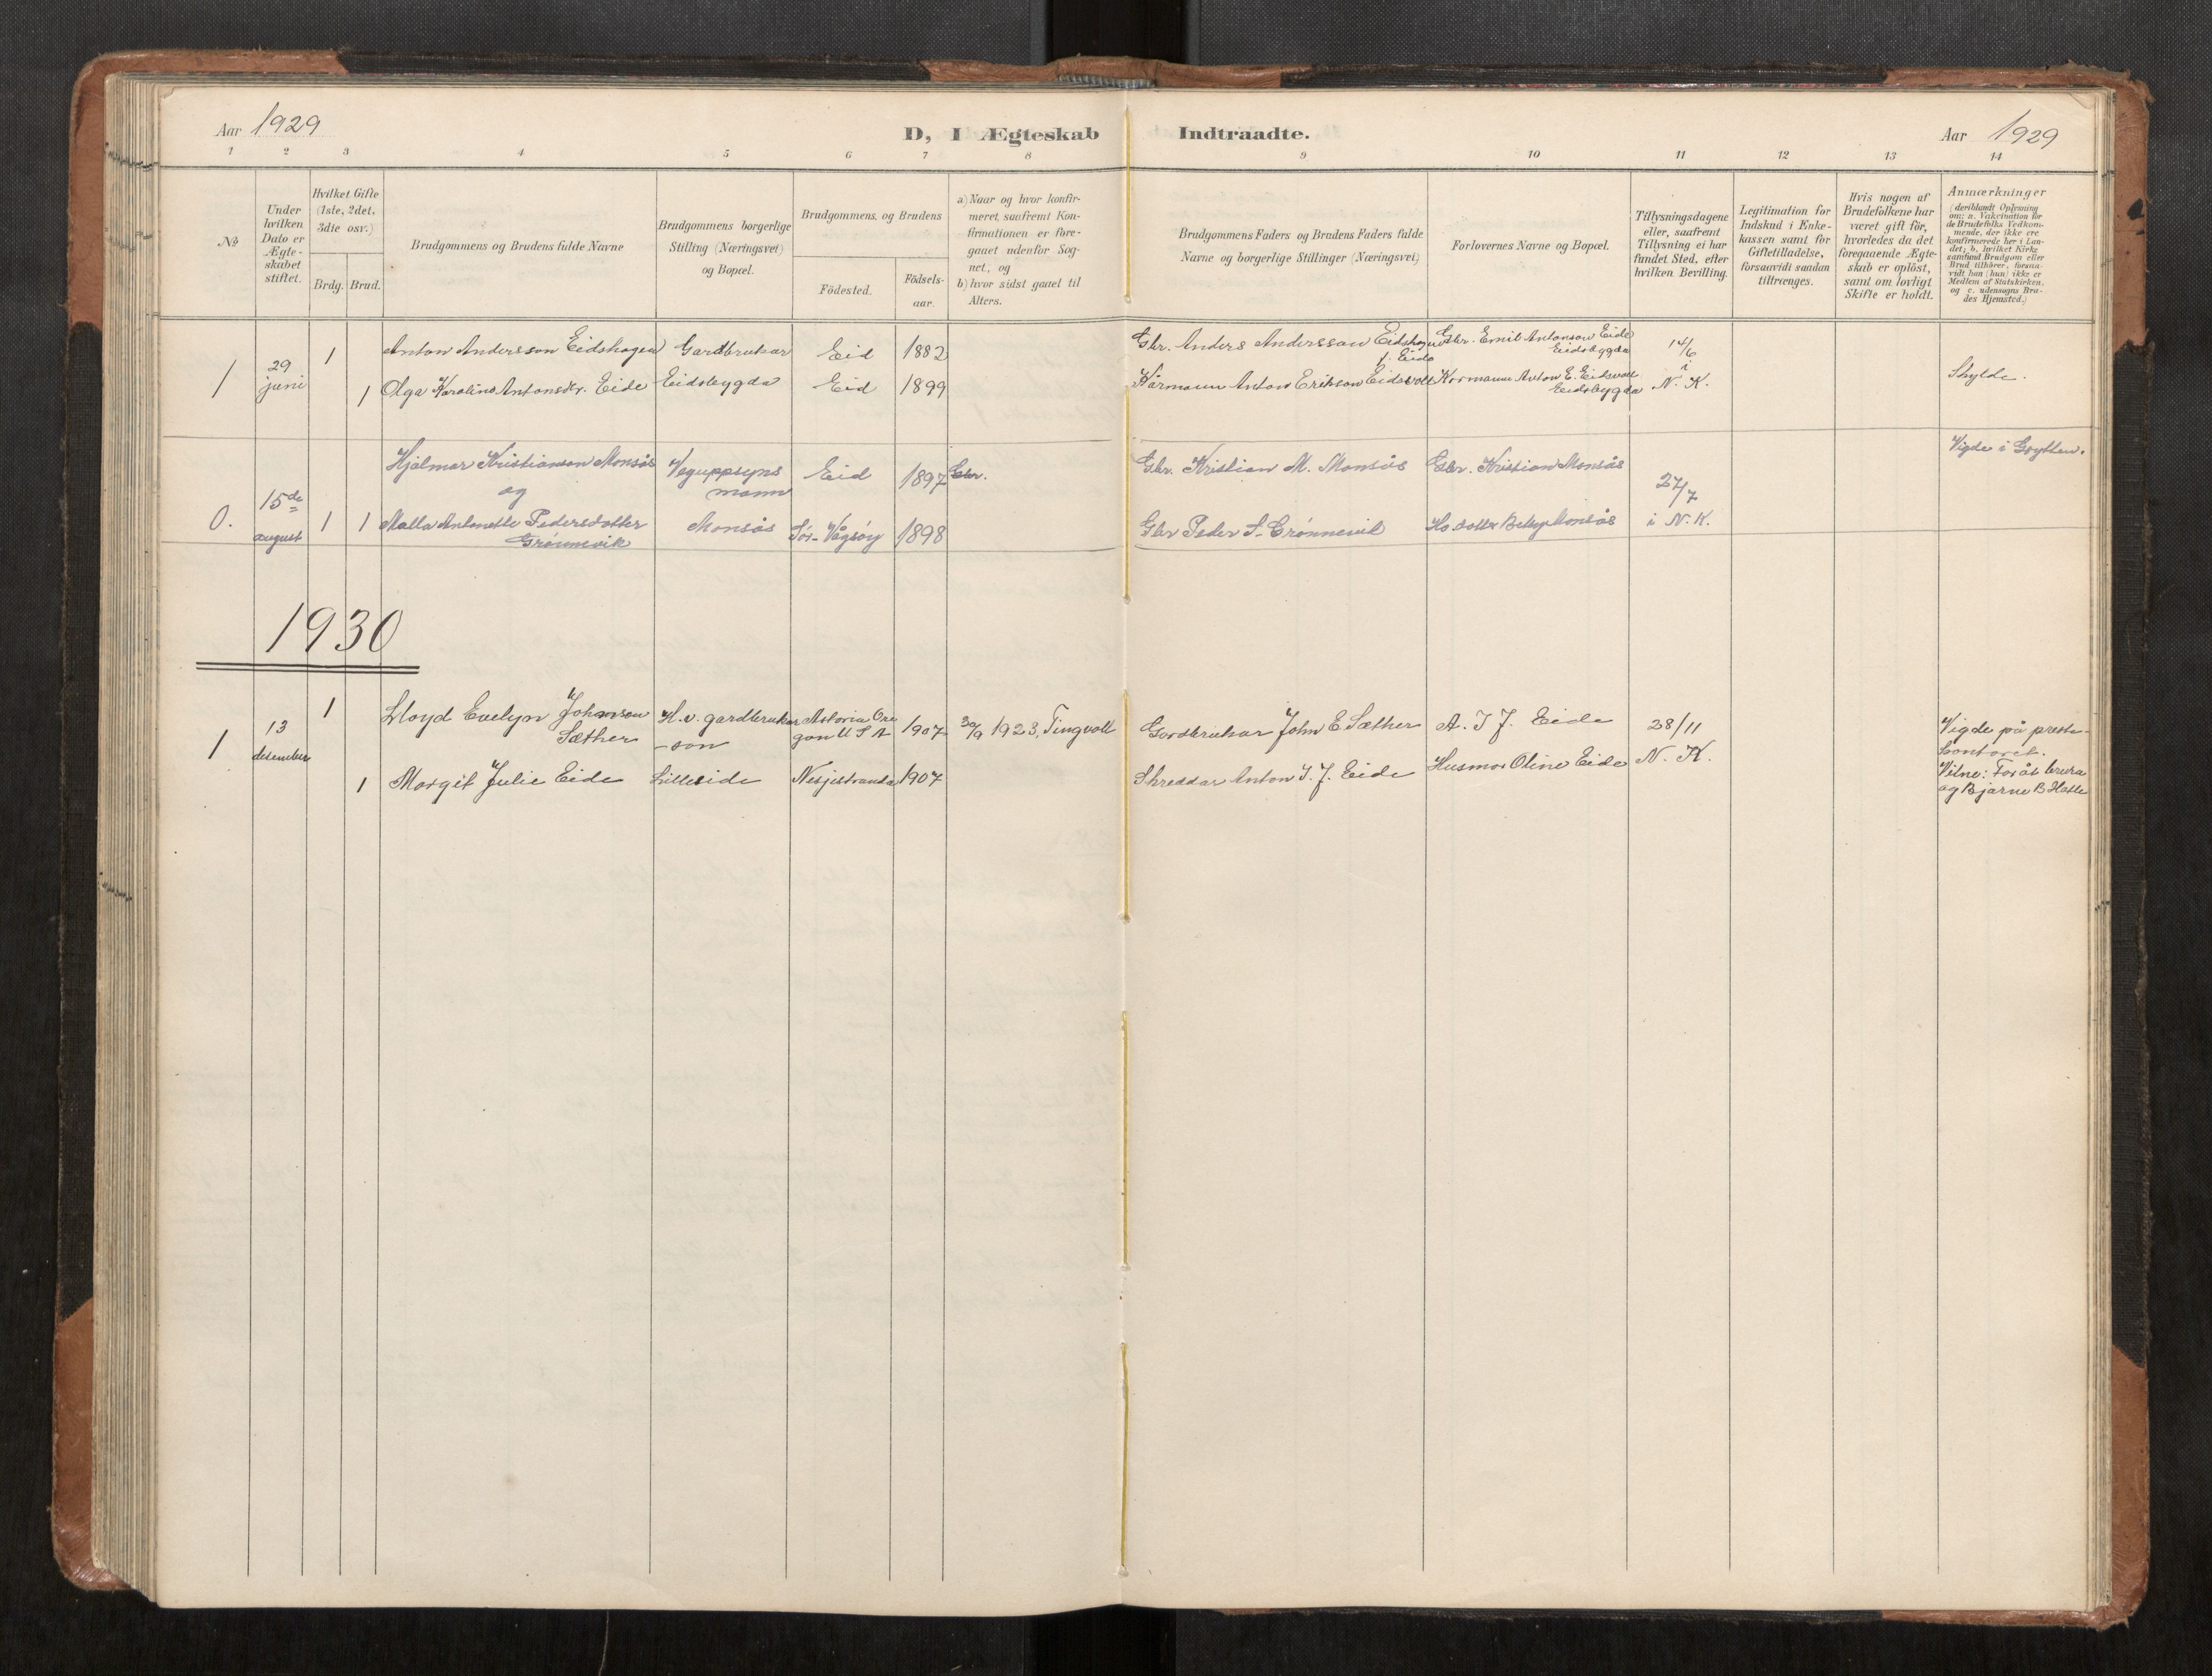 Aar 1929
D, I Ægteskab Indtraadte.
Aar 1929
1 2 3 4 5 6 7 8 9 10 11 12 13 14
No
Under
hvilken
Dato er
Ægte-
skabet
stiftet.
Hvilket Gifte
(1ste, 2det,
3die osv.)
Brdg. Brud.
Brudgommens og Brudens fulde Navne
Brudgommens borgerlige
Stilling (Næringsvei)
og Bopæl.
Brudgommens, og Brudens
Födested.
Födsels-
aar.
a) Naar og hvor konfir-
meret, saafremt Kon-
firmationen er fore-
gaaet udenfor Sog-
net, og
b) hvor sidst gaaet til
Alters.
Brudgommens Faders og Brudens Faders fulde
Navne og borgerlige Stillinger (Næringsvei)
Forlovernes Navne og Bopæl.
Tillysningsdagene
eller, saafremt
Tillysning ei har
fundet Sted, efter
hvilken Bevilling.
Legitimation for
Indskud i Enke-
kassen samt for
Giftetilladelse,
forsaavidt saadan
tiltrænges.
Hvis nogen af
Brudefolkene har
været gift för,
hvorledes da det
foregaaende Ægte-
skab er oplöst,
samt om lovligt
Skifte er holdt.
Anmærkninger
(deriblandt Oplysning
om: a. Vakcination for
de Brudefolks Vedkom-
mende, der ikke ere
konfirmerede her i Lan-
det; b. hvilket Kirke
samfund Brudgom eller
Brud tilhörer, forsaa-
vidt han (hun) ikke er
Medlem af Statskirken.
og c. udensogns Bru-
des Hjemsted.)
1 29 juni 1 Anton Andersson Eidshagen Gardbrukar Eid 1882 Gbr. Anders Andersson Eidshagen f. Eide Gbr. Emil Antonson Eide Eidsbygda 14/6 i
1 Olga Karolina Antonsdr. Eide Eidsbygda Eid 1899 Kormann Anton Erikson Eidsvoll Kormann Anton E. Eidsvoll Eidsbygda N. K. Skylde.
Hjalmar Kristianson Monsås Veguppsyns mann Eid 1897 Gbr. Gbr. Kristian M. Monsås Gbr. Kristian Monsås 27/7 Vigde i Grytten.
og
0. 15de august 1 1 Malla Antonette Pedersdotter Grönnevik Monsås Sör-Vågsöy 1898 Gbr Peder A. Grönnevik Ho dotter Betsy Monsås i N. K.
1930
1 13 desember 1 Lloyd Evelyn Johnson Sæther H. v. gardbrukar -son Astoria Oregon U S A 1907 30/9 1923, Tingvoll Gardbrukar John E Sæther A. I J. Eide 28/11 Vigde på preste-
kontoret.
1 Margit Julie Eide Lilleeide Nesjestranda 1907 Skreddar Anton I. J. Eide Husmor Oline Eide N. K. Vitne:
og Bjarne B Hatle